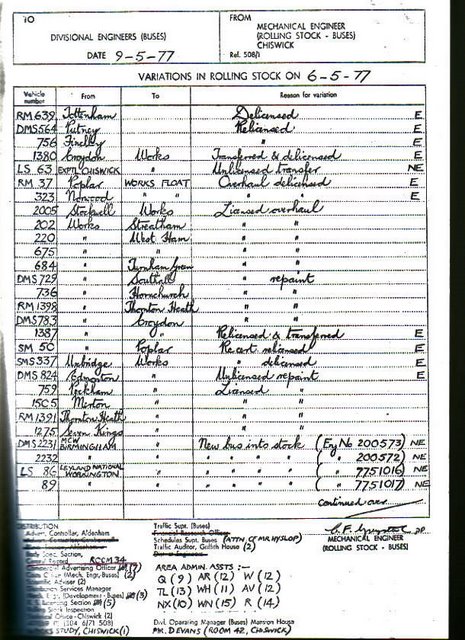 TO
DIVISIONAL ENGINEERS (BUSES)
DATE 9-5-77
FROM
MECHANICAL ENGINEER
(ROLLING STOCK - BUSES)
CHISWICK
Ref. 508/1
VARIATIONS IN ROLLING STOCK ON 6-5-77
Vehicle number From To Reason for variation
RM 639 Tottenham Delicensed E
DMS 564 Putney Relicensed E
756 Finchley " E
1380 Croydon Works Transferred & delicensed E
LS 63 EXPTL CHISWICK " Unlicensed transfer NE
RM 37 Poplar WORKS FLOAT Overhaul delicensed E
323 Norwood " " " " E
2005 Stockwell Works Licensed overhaul
202 Works Streatham " "
220 " West Ham " "
675 " " " "
684 " Turnham Green " "
DMS 729 " Southall " repaint
736 " Hornchurch " "
RM 1398 " Thornton Heath " "
DMS 783 " Croydon " "
1387 " " Relicensed & transferred E
SM 50 " Poplar Recert relicensed E
SMS 337 Uxbridge Works " delicensed E
DMS 824 Edmonton " Unlicensed repaint E
759 Peckham " Licensed "
1505 Merton " " "
RM 1391 Thornton Heath " " "
1275 Seven Kings " " "
DMS 2231 MCW BIRMINGHAM " New bus into stock (Eng No 200573) NE
2232 " " " " " " ( " 200572) NE
LS 86 LEYLAND NATIONAL WORKINGTON " " " " " ( " 7751016) NE
89 " " " " " " ( " 7751017) NE
continued over
DISTRIBUTION
Controller, Aldenham
Section,
Record ROOM 34
Commercial Advertising Officer (7)
Office (Mech. Engr, Buses) (2)
Adviser (2)
Services Manager
(Development - Buses) (3)
Licensing Section (5)
Rolling Stock Inspection
Office - Chiswick (2)
WORKS STUDY, CHISWICK (1)
Traffic Supt. (Buses)
Schedules Supt. Buses (ATTN. OF MR HYSLOP)
Traffic Auditor, Griffith House (2)
AREA ADMN. ASSTS :-
Q (9) AR (12) W (12)
TL (13) WH (11) AV (12)
NX (10) WN (15) R (14)
Divl. Operating Manager (Buses) Mansion House
MR. D EVANS (ROOM 42, CHISWICK)
MECHANICAL ENGINEER
(ROLLING STOCK - BUSES)